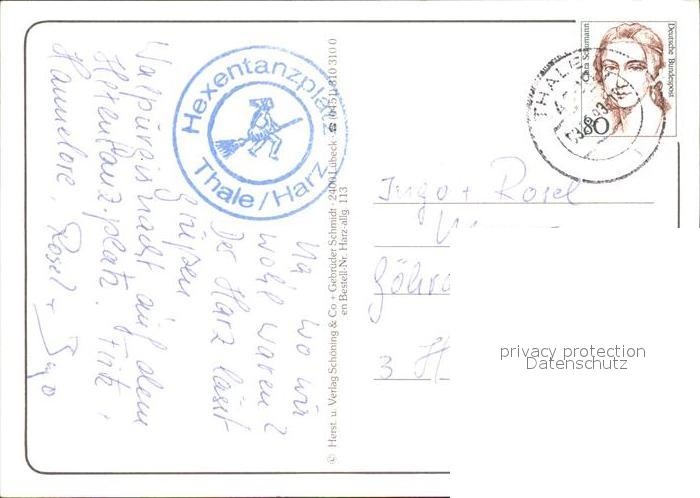 Na, wo wir
wohl waren?
Der Harz lässt
grüßen
Walpurgisnacht auf dem
Hexentanzplatz. Fritz,
Hannelore, Rosel + Ingo
Hexentanzplatz
Thale/Harz
© Herst. u. Verlag Schöning & Co + Gebrüder Schmidt · 24001 Lübeck · ☎ (0451) 310 310 0
en Bestell-Nr. Harz-allg. 113
Clara Schumann
Deutsche Bundespost
80
THALE
Ingo + Rosel
3 H
privacy protection
Datenschutz